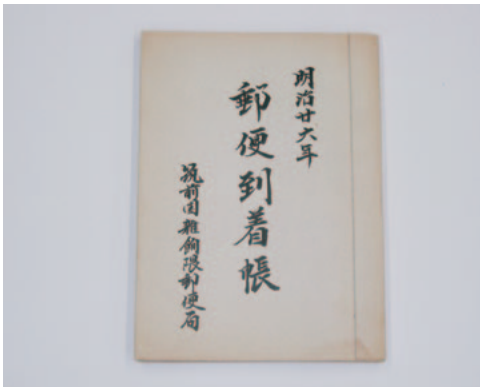 明治廿六年
郵便到着帳
筑前国雑餉隈郵便局